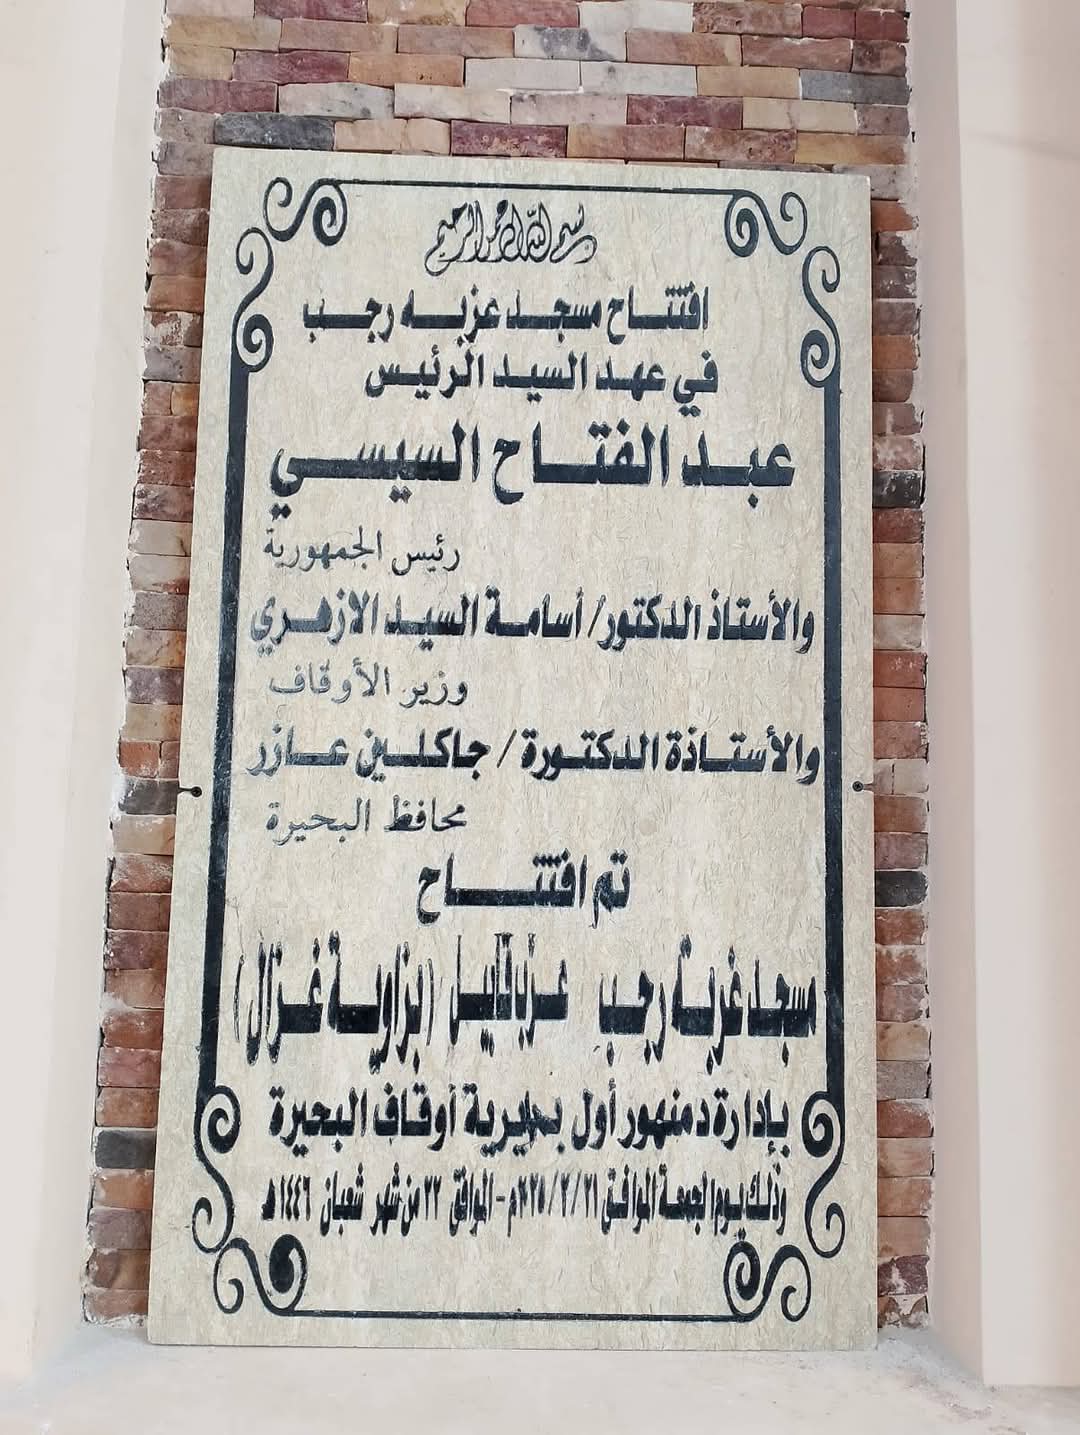 بسم الله الرحمن الرحيم
افتتاح مسجد عزبه رجب
في عهد السيد الرئيس
عبد الفتاح السيسي
رئيس الجمهورية
والأستاذ الدكتور/ أسامة السيد الازهري
وزير الأوقاف
والأستاذة الدكتورة / جاكلين عازر
محافظ البحيرة
تم افتتاح
مسجد غربة رجب قابيل (بزاوية غزال)
بإدارة دمنهور أول بمديرية أوقاف البحيرة
وذلك يوم الجمعة الموافق ٢١/٢/٢٠٢٥م - الموافق ٢٢ من شهر شعبان ١٤٤٦هـ